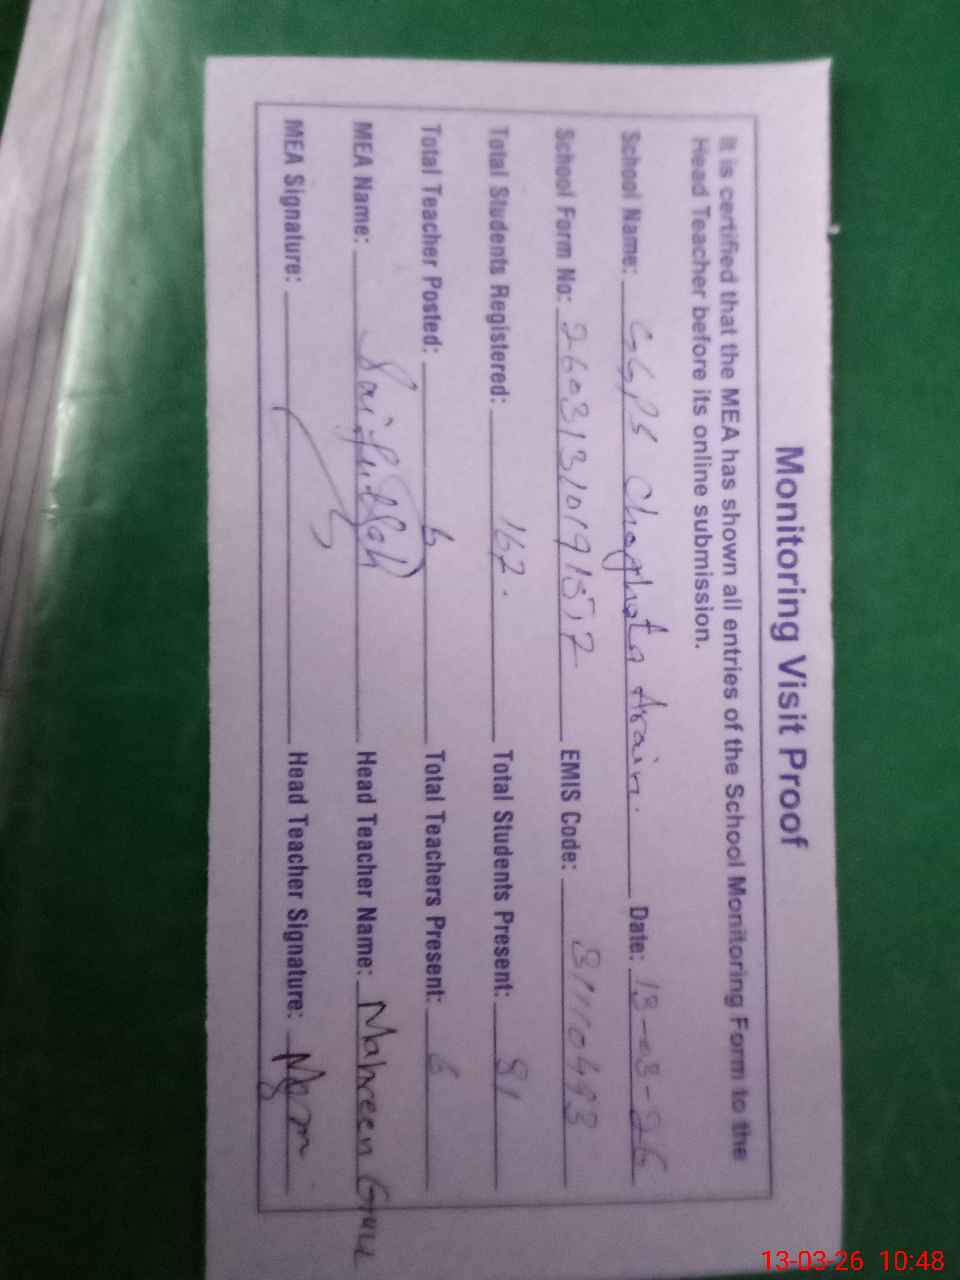 Monitoring Visit Proof
It is certified that the MEA has shown all entries of the School Monitoring Form to the
Head Teacher before its online submission.
School Name: GGPS Chaghata Arain. Date: 13-03-26
School Form No: EMIS Code: 31110493
Total Students Registered: 162. Total Students Present: 81
Total Teacher Posted: 6 Total Teachers Present: 6
MEA Name: Saifullah Head Teacher Name: Mahreen
MEA Signature: Head Teacher Signature:
13-03-26 10:48